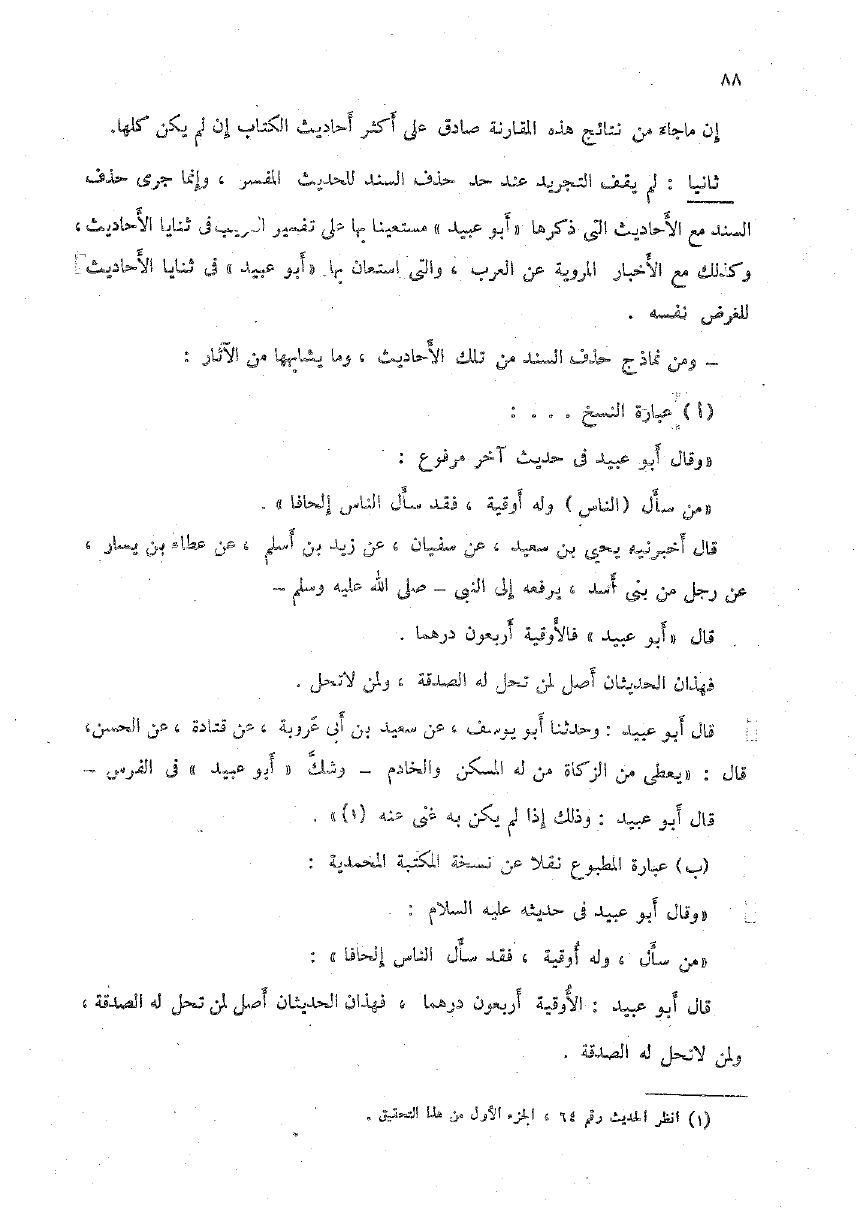 ٨٨
إن ماجاء من نتائج هذه المقارنة صادق على أكثر أحاديث الكتاب إن لم يكن كلها.
ثانيا : لم يقف التجريد عند حد حذف السند للحديث المفسر ، وإنما جرى حذف
السند مع الأحاديث التي ذكرها «أبو عبيد» مستعينا بها على تفسير الـريب فى ثنايا الأحاديث ،
وكذلك مع الأخبار المروية عن العرب ، والتى استعان بها «أبو عبيد» فى ثنايا الأحاديث
للغرض نفسه .
– ومن نماذج حذف السند من تلك الأحاديث ، وما يشابهها من الآثار :
(أ) عبارة النسخ . . . :
«وقال أبو عبيد فى حديث آخر مرفوع :
«من سأل (الناس) وله أوقية ، فقد سأل الناس إلحافا» .
قال أخبرنيه يحيى بن سعيد ، عن سفيان ، عن زيد بن أسلم ، عن عطاء بن يسار ،
عن رجل من بنى أسد ، يرفعه إلى النبي – صلى الله عليه وسلم –
قال «أبو عبيد» فالأوقية أربعون درهما .
فهذان الحديثان أصل لمن تحل له الصدقة ، ولمن لاتحل .
قال أبو عبيد : وحدثنا أبو يوسف ، عن سعيد بن أبى عَروبة ، عن قتادة ، عن الحسن،
قال : «يعطى من الزكاة من له المسكن والخادم – وشكَّ «أبو عبيد» فى الفرس –
قال أبو عبيد : وذلك إذا لم يكن به غنى عنه (١)» .
(ب) عبارة المطبوع نقلا عن نسخة المكتبة المحمدية :
«وقال أبو عبيد فى حديثه عليه السلام :
«من سأل ، وله أُوقية ، فقد سأل الناس إلحافا» :
قال أبو عبيد : الأُوقية أربعون درهما ، فهذان الحديثان أصل لمن تحل له الصدقة ،
ولمن لاتحل له الصدقة .
(١) انظر الحديث رقم ٦٤ ، الجزء الأول من هذا التحقيق .